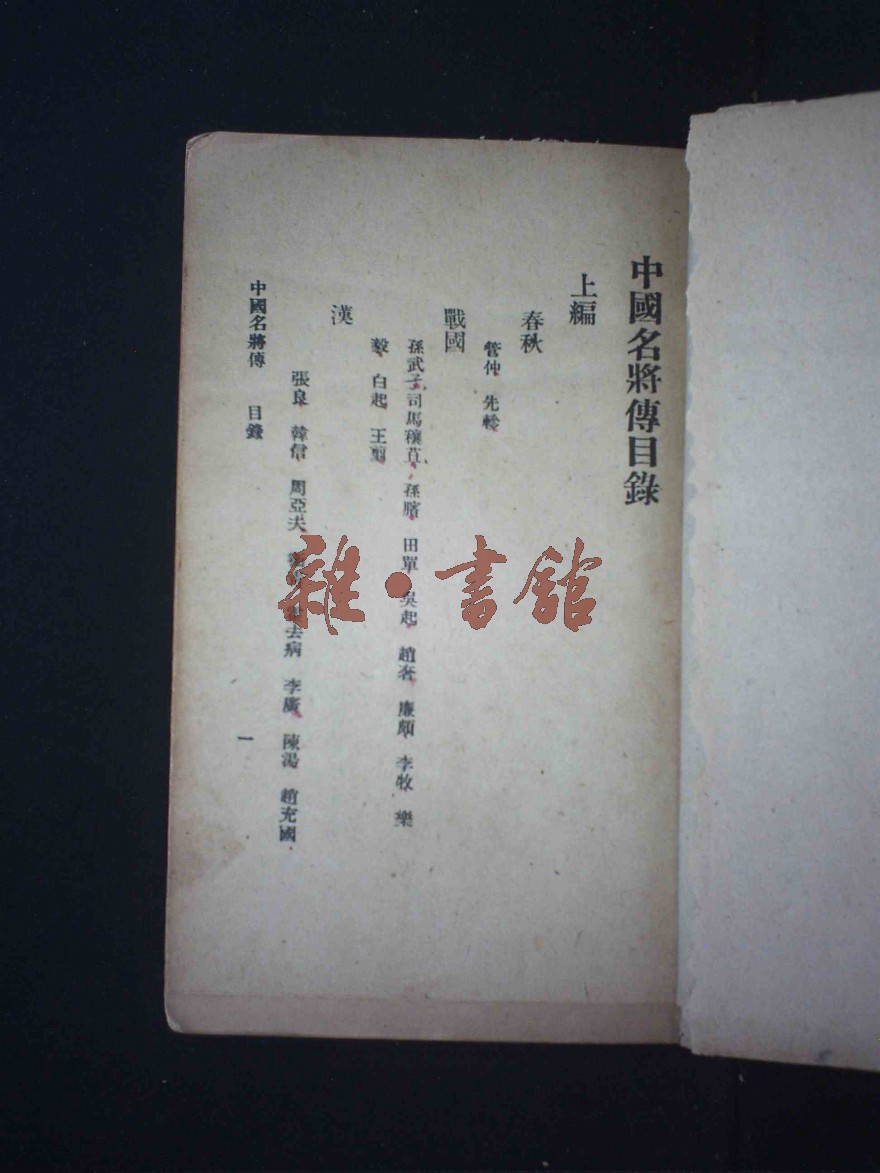 中國名將傳目錄
上編
春秋
管仲 先軫
戰國
孫武子 司馬穰苴 孫臏 田單 吳起 趙奢 廉頗 李牧 樂
毅 白起 王翦
漢
張良 韓信 周亞夫 去病 李廣 陳湯 趙充國
中國名將傳 目錄
一
雜·書館